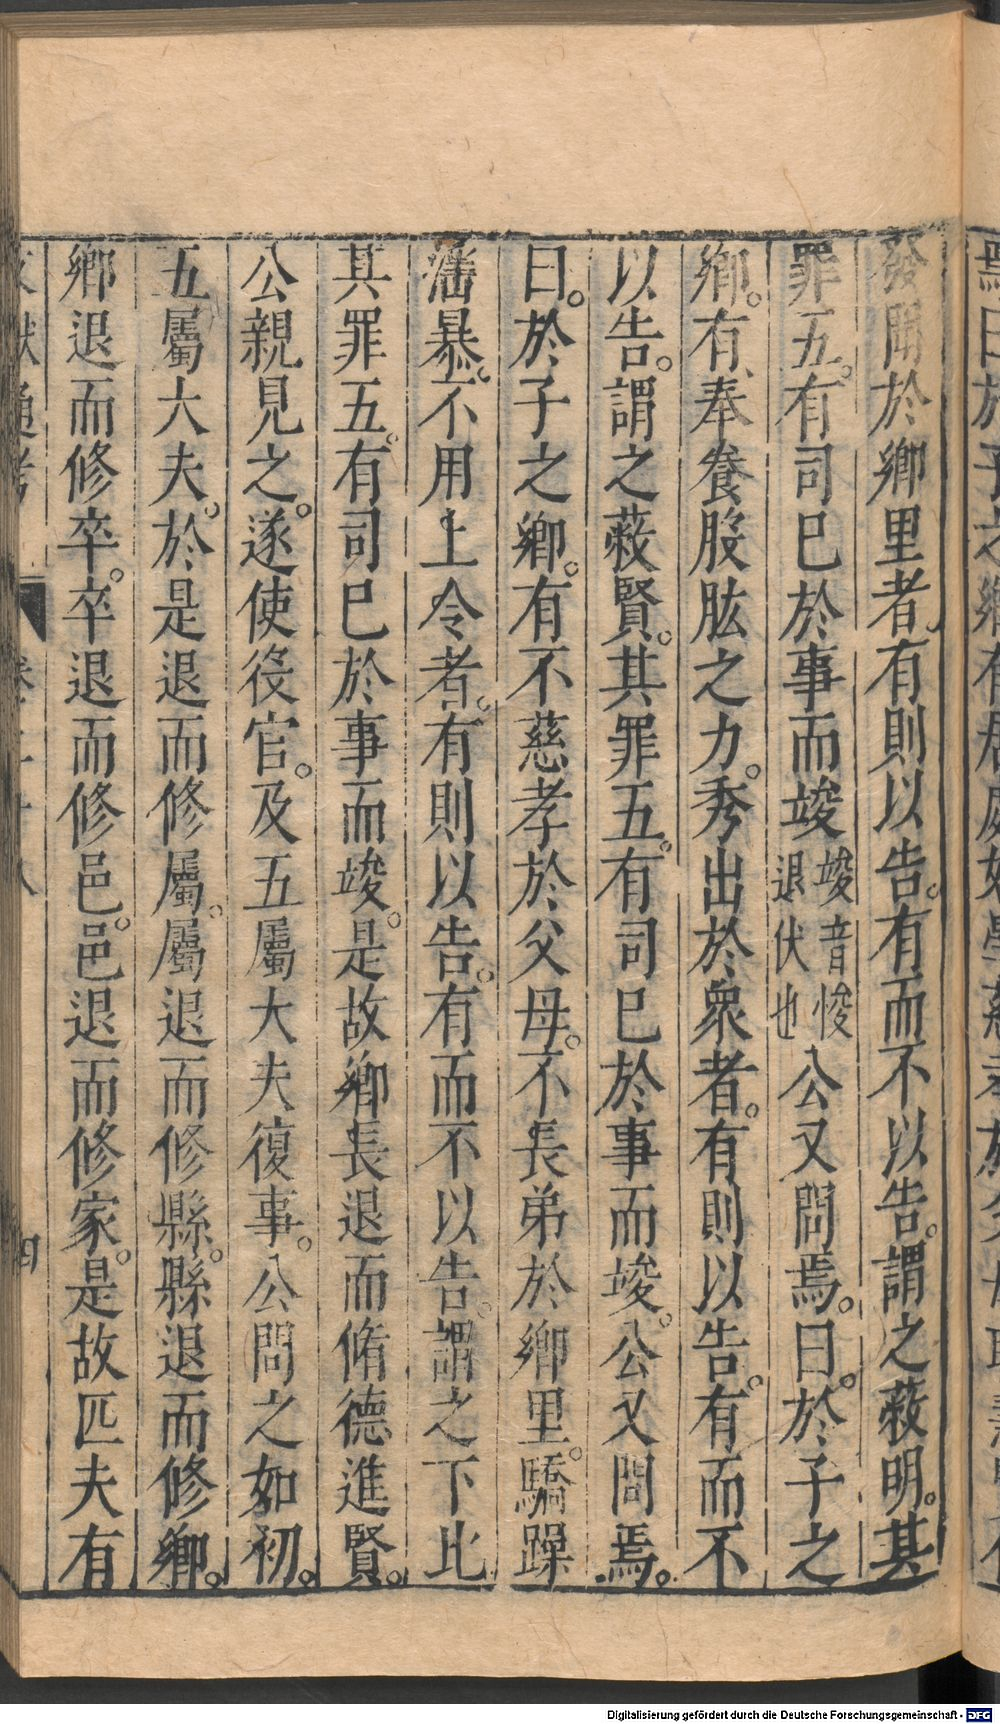 發聞於鄉里者有則以告。有而不以告。謂之蔽明。其
罪五。有司已於事而竣竣音悛退伏也公又問焉。曰。於子之
鄉。有奉養股肱之力。秀出於衆者。有則以告。有而不
以告。謂之蔽賢。其罪五。有司已於事而竣。公又問焉。
曰。於子之鄉。有不慈孝於父母。不長弟於鄉里。驕躁
滛暴。不用上令者。有則以告。有而不以告。謂之下比
其罪五。有司已於事而竣。是故鄉長退而脩德進賢。
公親見之。遂使役官。及五屬大夫復事。公問之如初。
五屬大夫。於是退而修屬。屬退而修縣。縣退而修鄉。
鄉退而修卒。卒退而修邑。邑退而修家。是故匹夫有
Digitalisierung gefördert durch die Deutsche Forschungsgemeinschaft - DFG